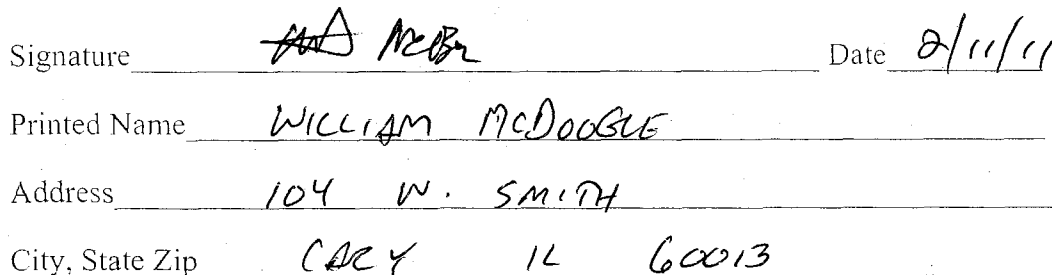 Signature Date 2/11/11
Printed Name WILLIAM MCDOOGLE
Address 104 W. SMITH
City, State Zip CARY IL 60013